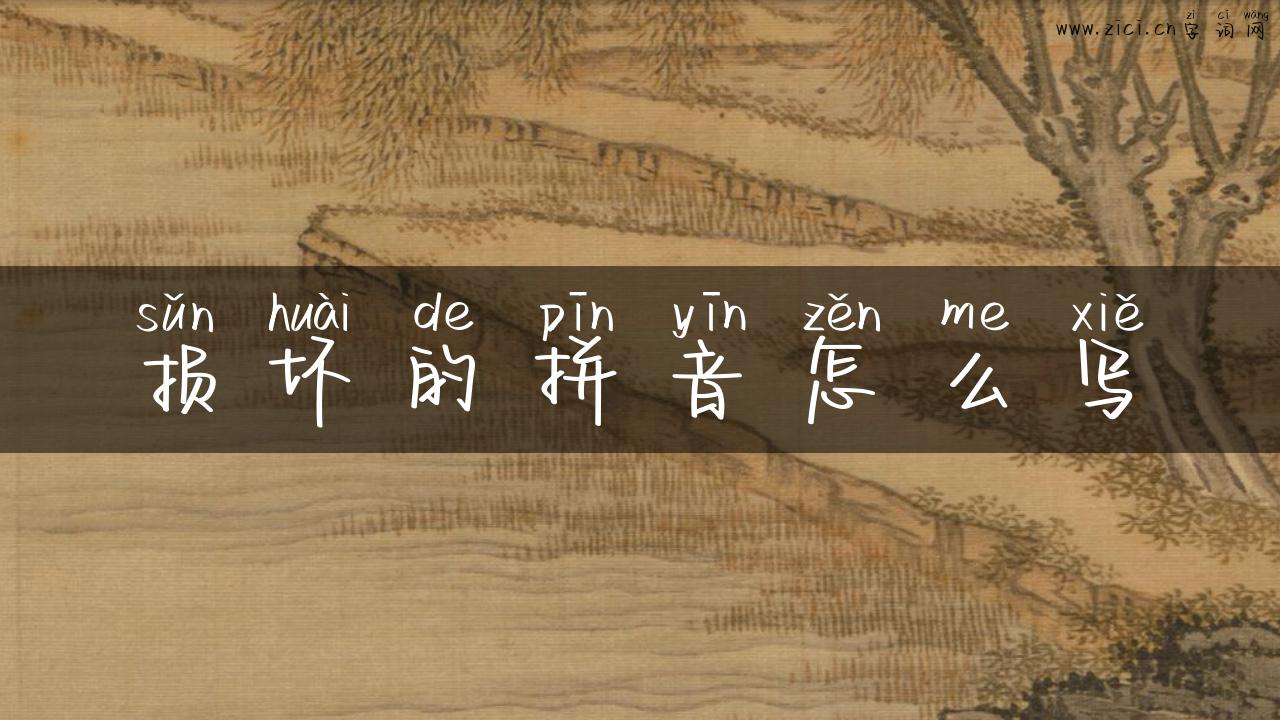 zì cí wǎng
www.zici.cn字词网
sǔn huài de pīn yīn zěn me xiě
损坏的拼音怎么写